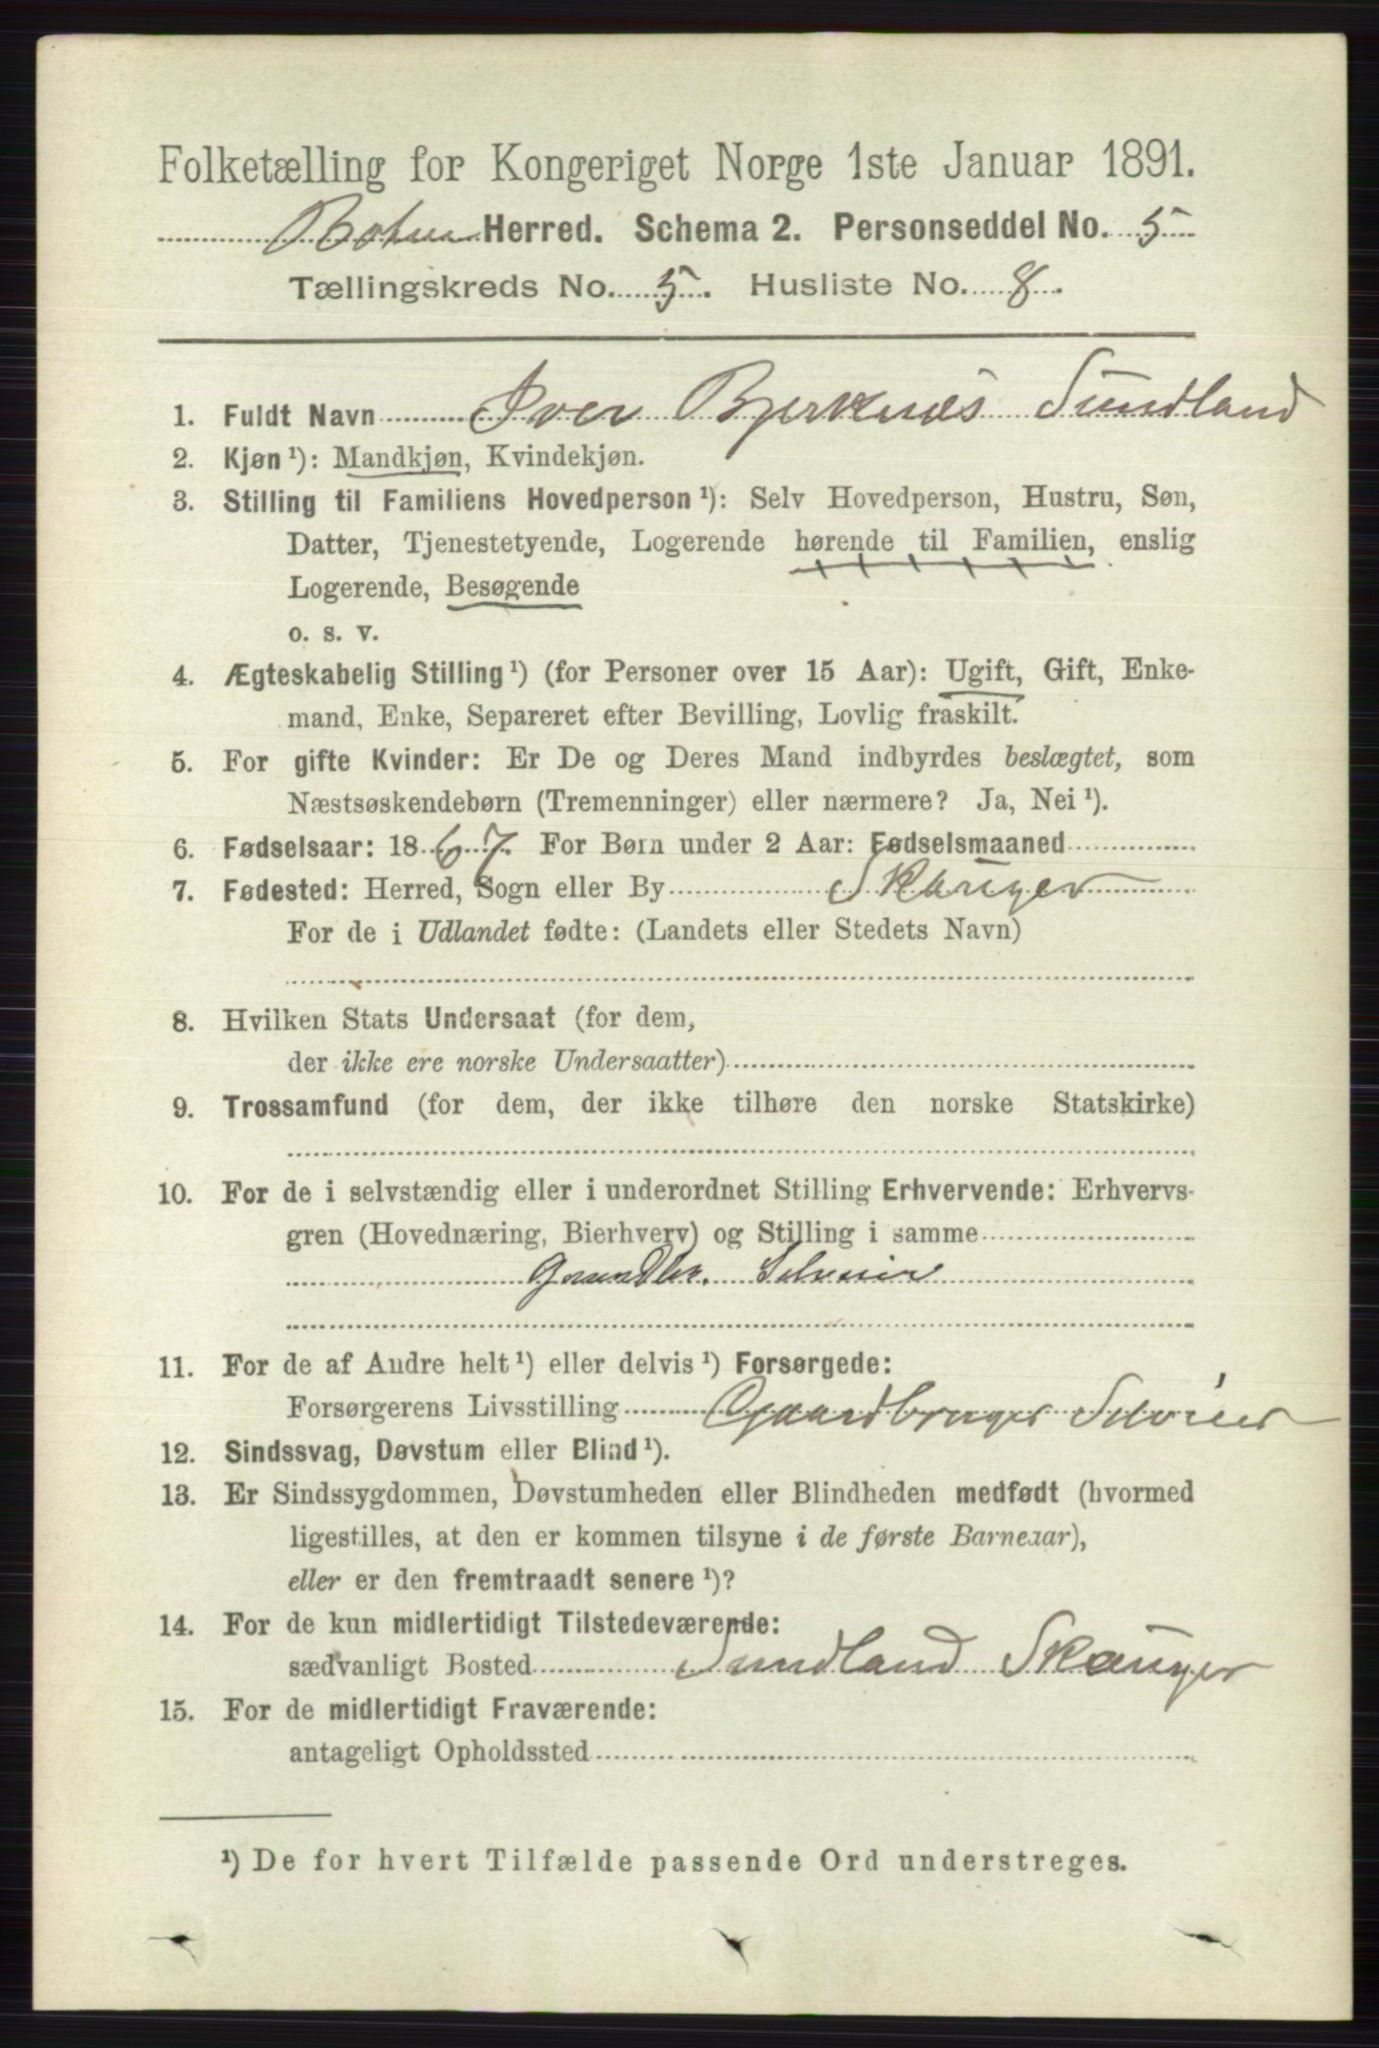 Folketælling for Kongeriget Norge 1ste Januar 1891.
Botne Herred. Schema 2. Personseddel No. 5
Tællingskreds No. 5. Husliste No. 8.
1. Fuldt Navn Iver Bjerknæs Sundland
2. Kjøn ¹): Mandkjøn, Kvindekjøn.
3. Stilling til Familiens Hovedperson ¹): Selv Hovedperson, Hustru, Søn,
Datter, Tjenestetyende, Logerende hørende til Familien, enslig
Logerende, Besøgende
o. s. v.
4. Ægteskabelig Stilling ¹) (for Personer over 15 Aar): Ugift, Gift, Enke-
mand, Enke, Separeret efter Bevilling, Lovlig fraskilt.
5. For gifte Kvinder: Er De og Deres Mand indbyrdes beslægtet, som
Næstsøskendebørn (Tremenninger) eller nærmere? Ja, Nei ¹).
6. Fødselsaar: 1867. For Børn under 2 Aar: Fødselsmaaned
7. Fødested: Herred, Sogn eller By Skauger
For de i Udlandet fødte: (Landets eller Stedets Navn)
8. Hvilken Stats Undersaat (for dem,
der ikke ere norske Undersaatter)
9. Trossamfund (for dem, der ikke tilhøre den norske Statskirke)
10. For de i selvstændig eller i underordnet Stilling Erhvervende: Erhvervs-
gren (Hovednæring, Bierhverv) og Stilling i samme
Gaardbr. Selveier
11. For de af Andre helt ¹) eller delvis ¹) Forsørgede:
Forsørgerens Livsstilling Gaardbruger Selveier
12. Sindssvag, Døvstum eller Blind ¹).
13. Er Sindssygdommen, Døvstumheden eller Blindheden medfødt (hvormed
ligestilles, at den er kommen tilsyne i de første Barneaar),
eller er den fremtraadt senere ¹)?
14. For de kun midlertidigt Tilstedeværende:
sædvanligt Bosted Sundland Skauger
15. For de midlertidigt Fraværende:
antageligt Opholdssted
¹) De for hvert Tilfælde passende Ord understreges.